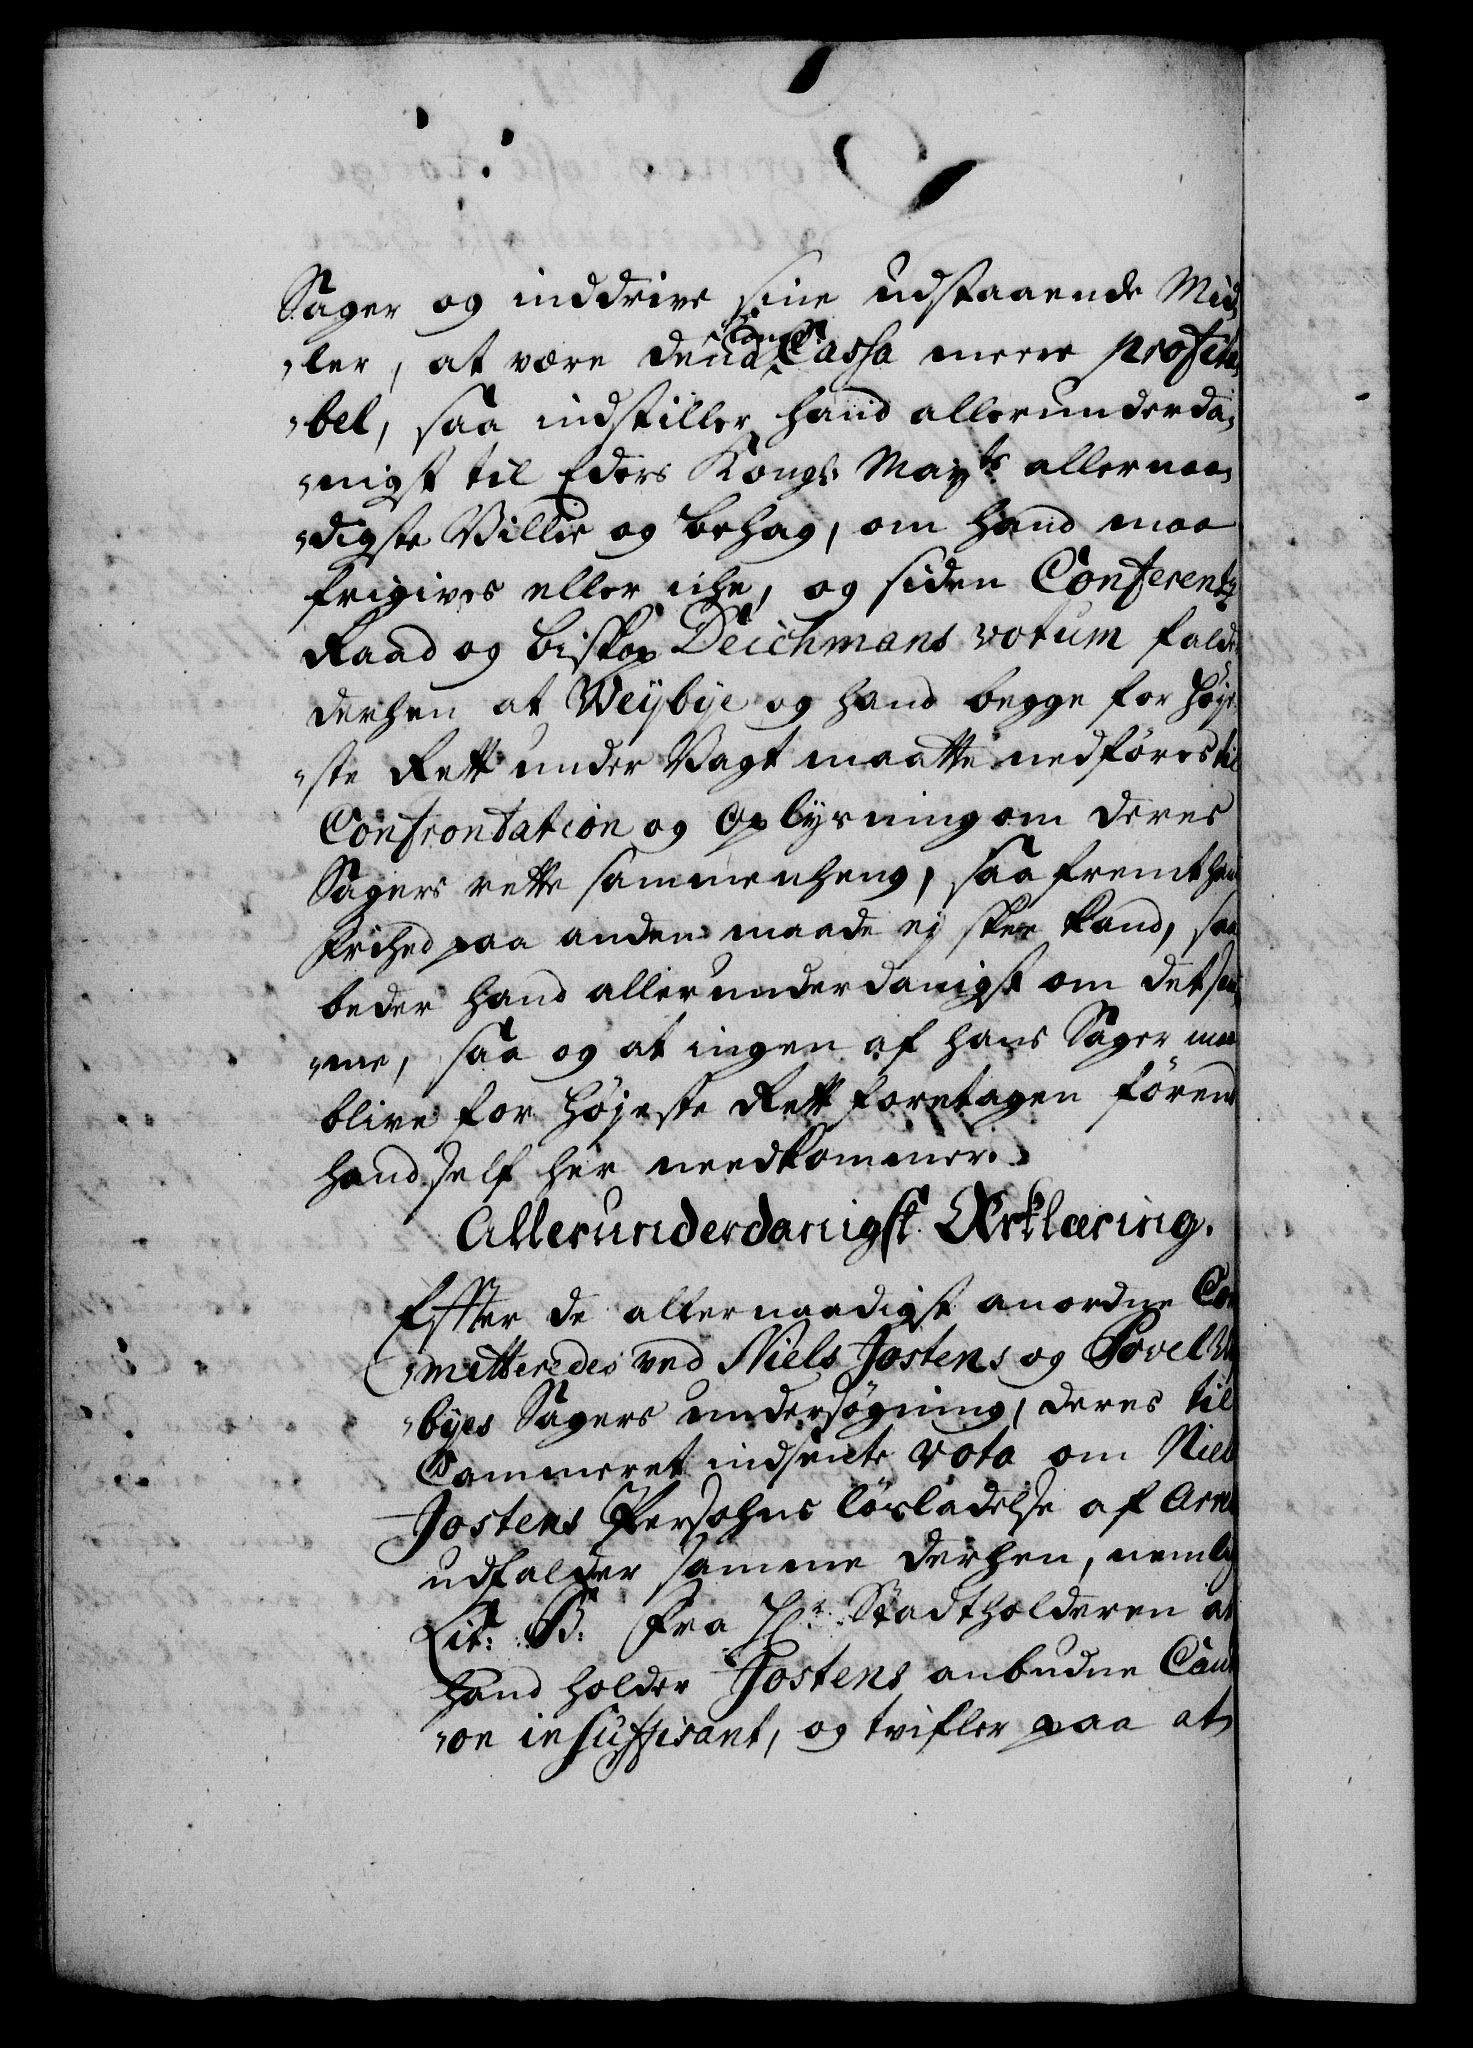 Sager og inddrive sine udstaaende Mid,
,ler, at være dend Cassa meere profita,
,bel, saa indstiller hand allerunderda,
,nigst til Eders Kongl: Mayts allernaa,
,digste Villie og behag, om hand maa
frigives eller iche, og siden Conferentz
Raad og biskop Deichmans votum falder
derhen at Weybye og hand begge for Høye
,ste Rett under Vagt maatte nedføres til
Confrontation og Oplysning om deres
Sagers rette sammenheng, saa fremt hans
frihed paa anden maade ej skee kand, saa
beder hand allerunderdanigst om det sam,
,me, saa og at ingen af hans Sager maa
blive for Højeste Rett foretagen førend
hand self her needkommer.
Allerunderdanigst Erklæring.
Effter de allernaadigst anordne Com
,mitteredes ved Niels Jostens og Povel Wey
,byes Sagers undersøgning, deres til
Cammeret indsente vota om Niels
Jostens Persohns løsladelse af Arre
udfalder samme derhen, nemlig
Lit: B: fra Hr. Stadtholderen at
hand holder Jostens anbudne Cauti
,on insuffisant, og tvifler paa at